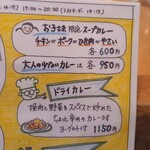 お子さま限定スープカレー
チキン or ポーク or ひき肉 or やさい
各600円
大人の少なめカレーは 各950円
ドライカレー
挽肉と野菜をスパイスで炒めた
ちょっと辛めのカレーです
ヨーグルト付 1150円